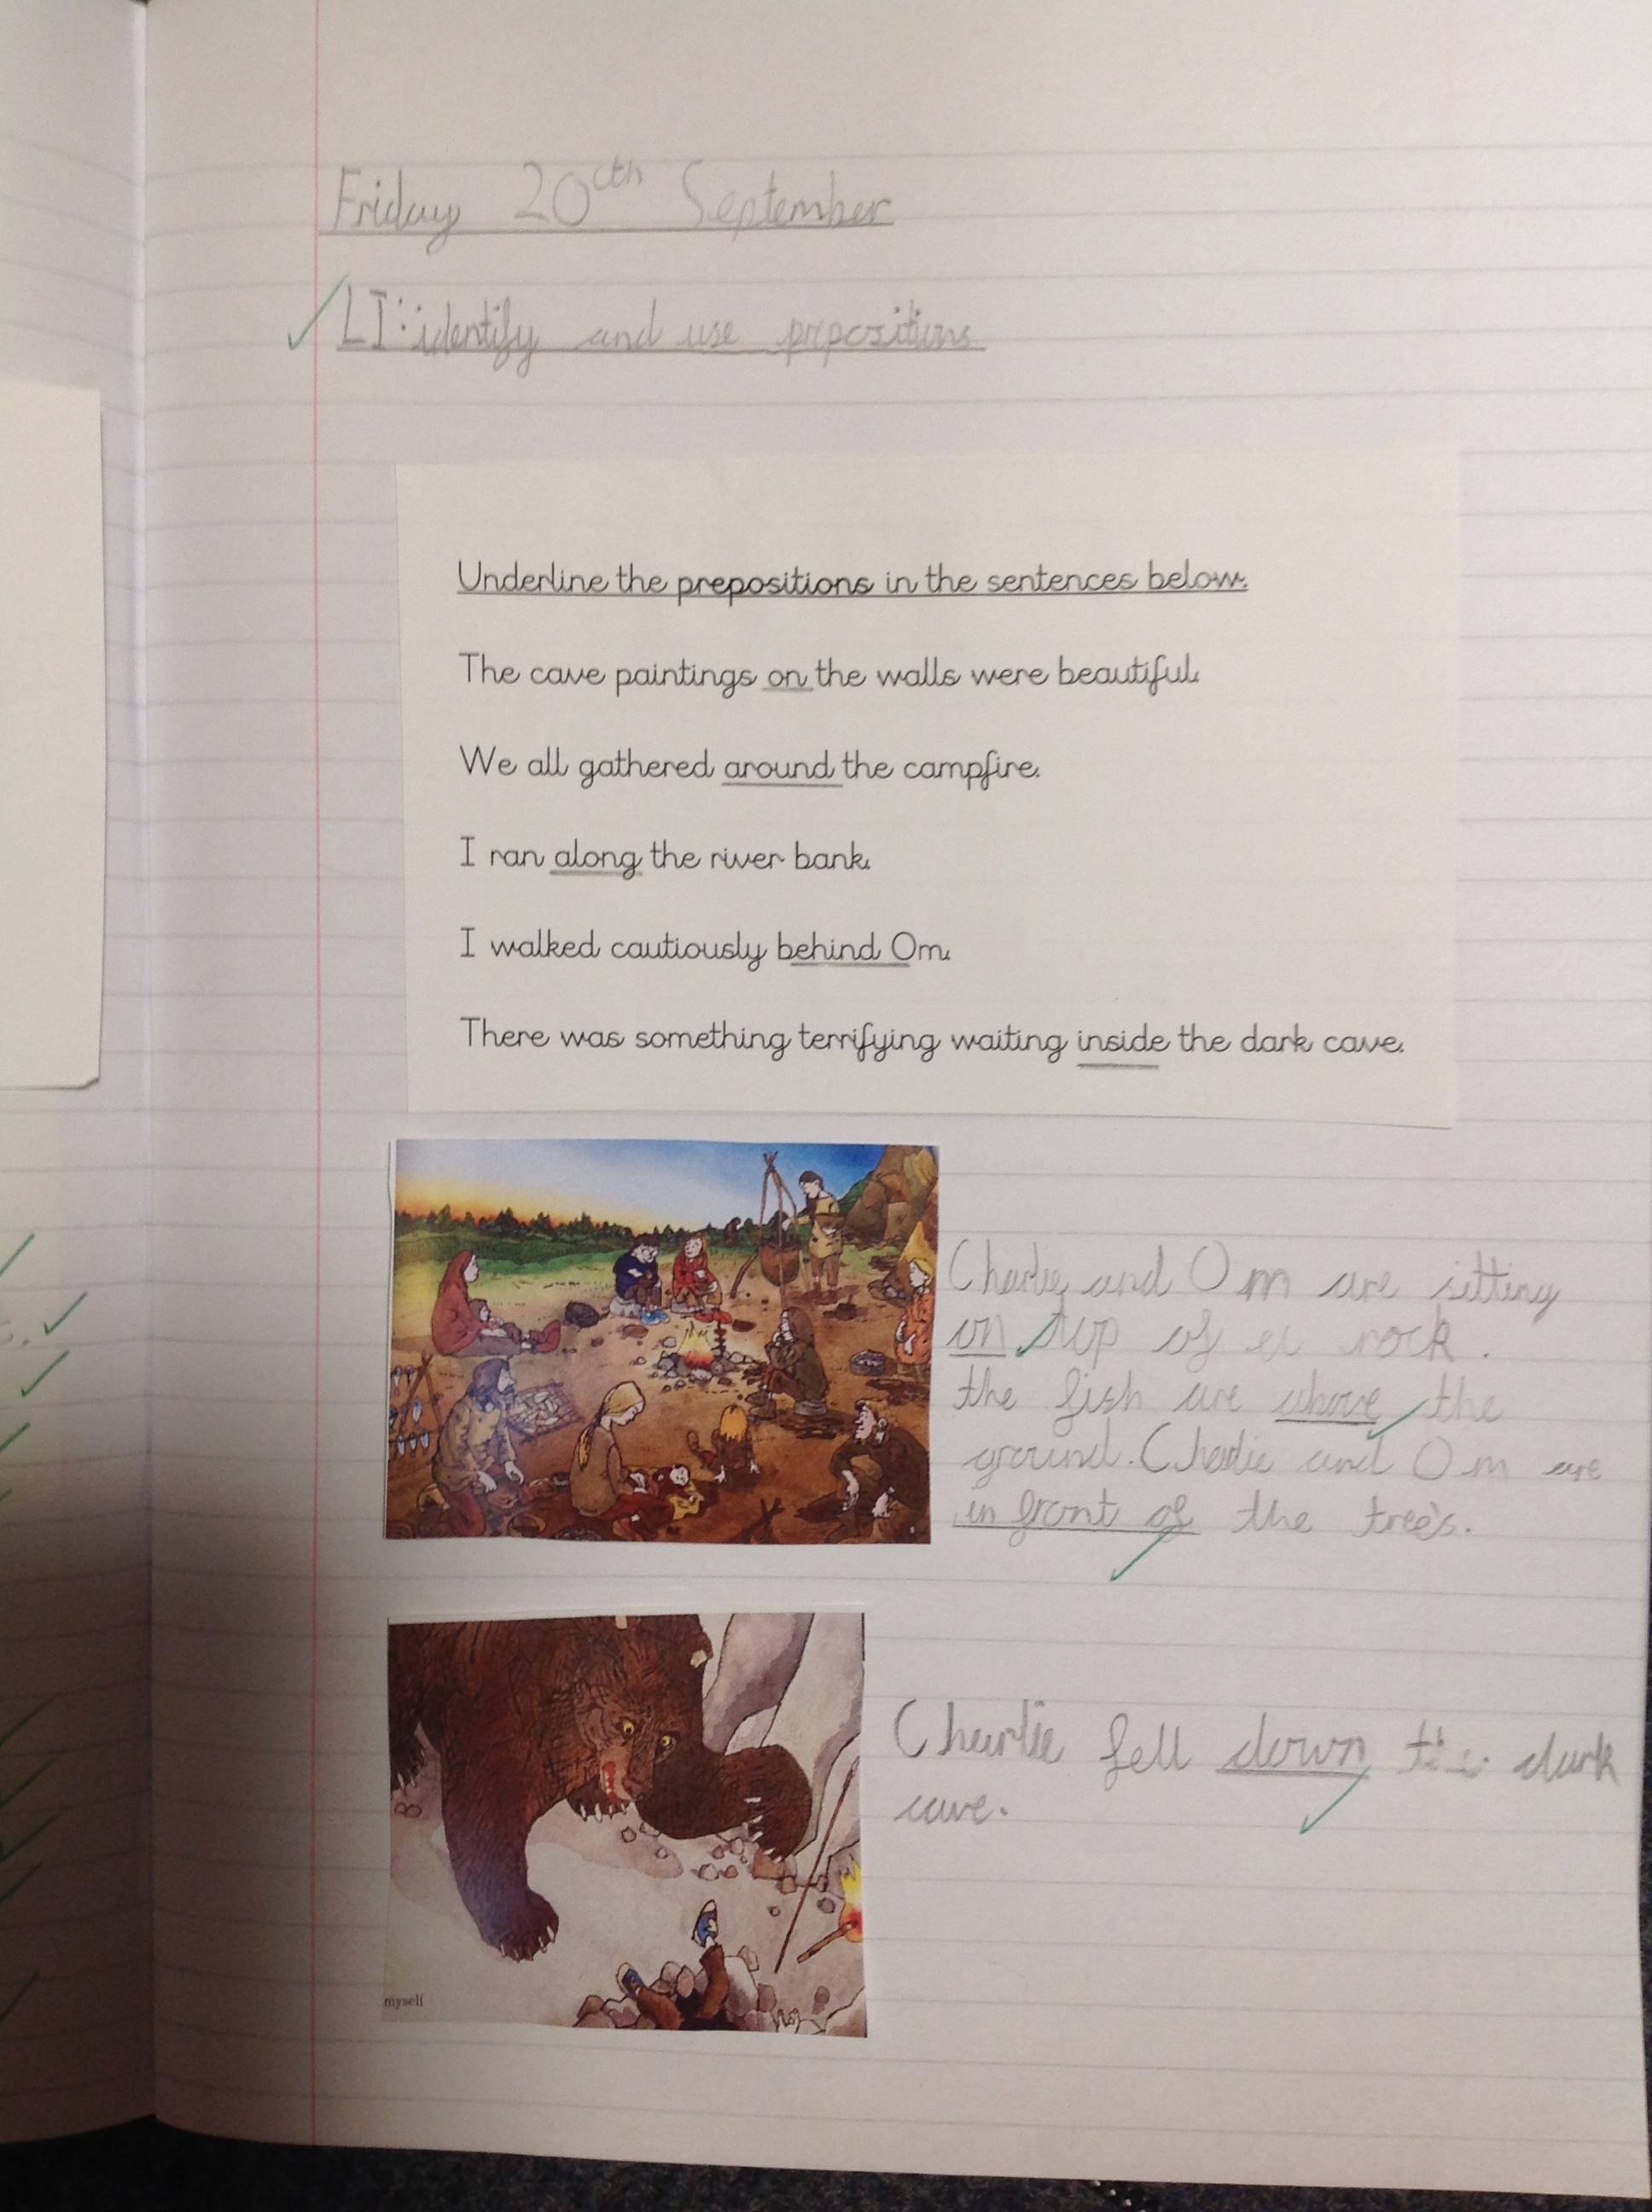 Friday 20th September
LI: identify and use prepositions
Underline the prepositions in the sentences below.
The cave paintings on the walls were beautiful.
We all gathered around the campfire.
I ran along the river bank.
I walked cautiously behind Om.
There was something terrifying waiting inside the dark cave.
Charlie and Om are sitting
on top of a rock.
the fish are above the
ground. Charlie and Om are
in front of the trees.
Charlie fell down the dark
cave.
myself